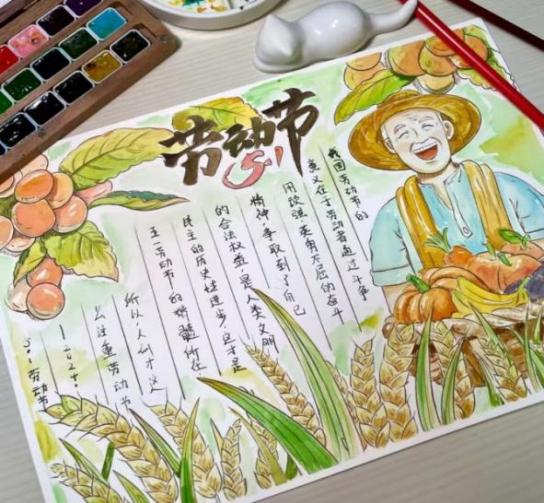 劳动节
5.1
我国劳动节的
意义在于劳动者通过斗争
用顽强、英勇不屈的奋斗
精神,争取到了自己
的合法权益,是人类文明
民主的历史性进步,这才是
五一劳动节的精髓所在
所以,人们才这
么注重劳动节
5.1劳动节